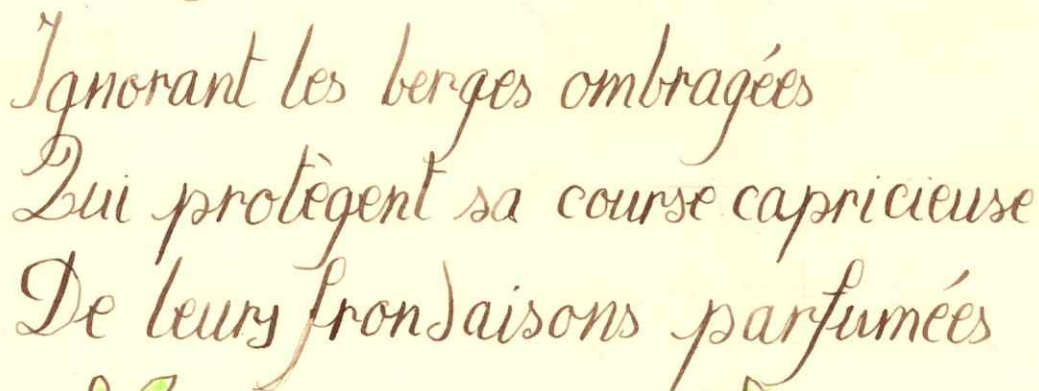 Ignorant les berges ombragées
Qui protègent sa course capricieuse
De leurs frondaisons parfumées